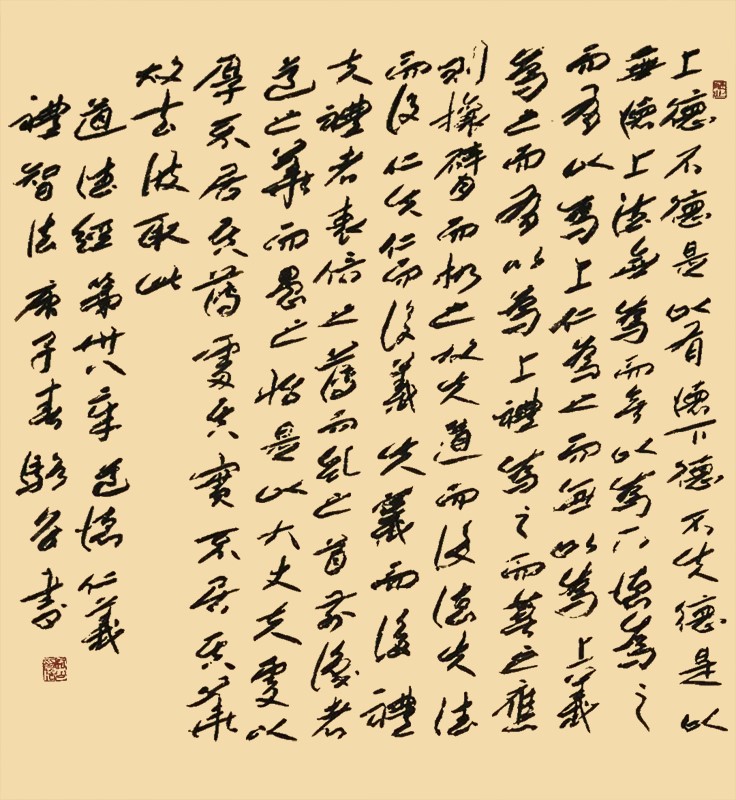 上德不德是以有德下德不失德是以
無德上德無為而無以為下德為之
而有以為上仁為之而無以為上義
為之而有以為上禮為之而莫之應
則攘臂而扔之故失道而後德失德
而後仁失仁而後義失義而後禮
夫禮者信之薄而亂之首前後者
道之華而愚之始是以大丈夫處以
厚不居其薄處其實不居其華
故去彼取此
道德經第卅八章道德仁義
禮智法庚子春駱書